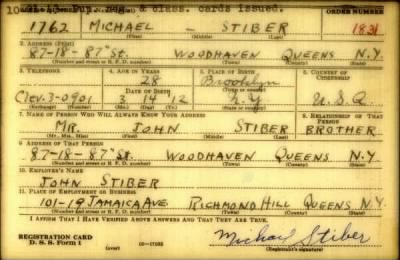 10 Dup. reg. & class. cards issued.
ORDER NUMBER
1762 MICHAEL – STIBER 1831
(First) (Middle) (Last)
2. ADDRESS (Print)
87-18-87th St. WOODHAVEN QUEENS N.Y.
(Number and street or R. F. D. number) (Town) (County) (State)
3. TELEPHONE 4. AGE IN YEARS 5. PLACE OF BIRTH 6. COUNTRY OF CITIZENSHIP
28 Brooklyn
DATE OF BIRTH (Town or county)
Clev. 3-0901 3 14 12 N.Y. U.S.A.
(Exchange) (Number) (Mo.) (Day) (Yr.) (State or country)
7. NAME OF PERSON WHO WILL ALWAYS KNOW YOUR ADDRESS 8. RELATIONSHIP OF THAT PERSON
Mr. JOHN STIBER BROTHER
(Mr., Mrs., Miss) (First) (Middle) (Last)
9. ADDRESS OF THAT PERSON
87-18-87th St. WOODHAVEN QUEENS N.Y.
(Number and street or R. F. D. number) (Town) (County) (State)
10. EMPLOYER'S NAME
JOHN STIBER
11. PLACE OF EMPLOYMENT OR BUSINESS
101-19 JAMAICA AVE. RICHMOND HILL QUEENS N.Y.
(Number and street or R. F. D. number) (Town) (County) (State)
I AFFIRM THAT I HAVE VERIFIED ABOVE ANSWERS AND THAT THEY ARE TRUE.
REGISTRATION CARD
D. S. S. FORM 1 (over) Michael Stiber
(Registrant's signature)